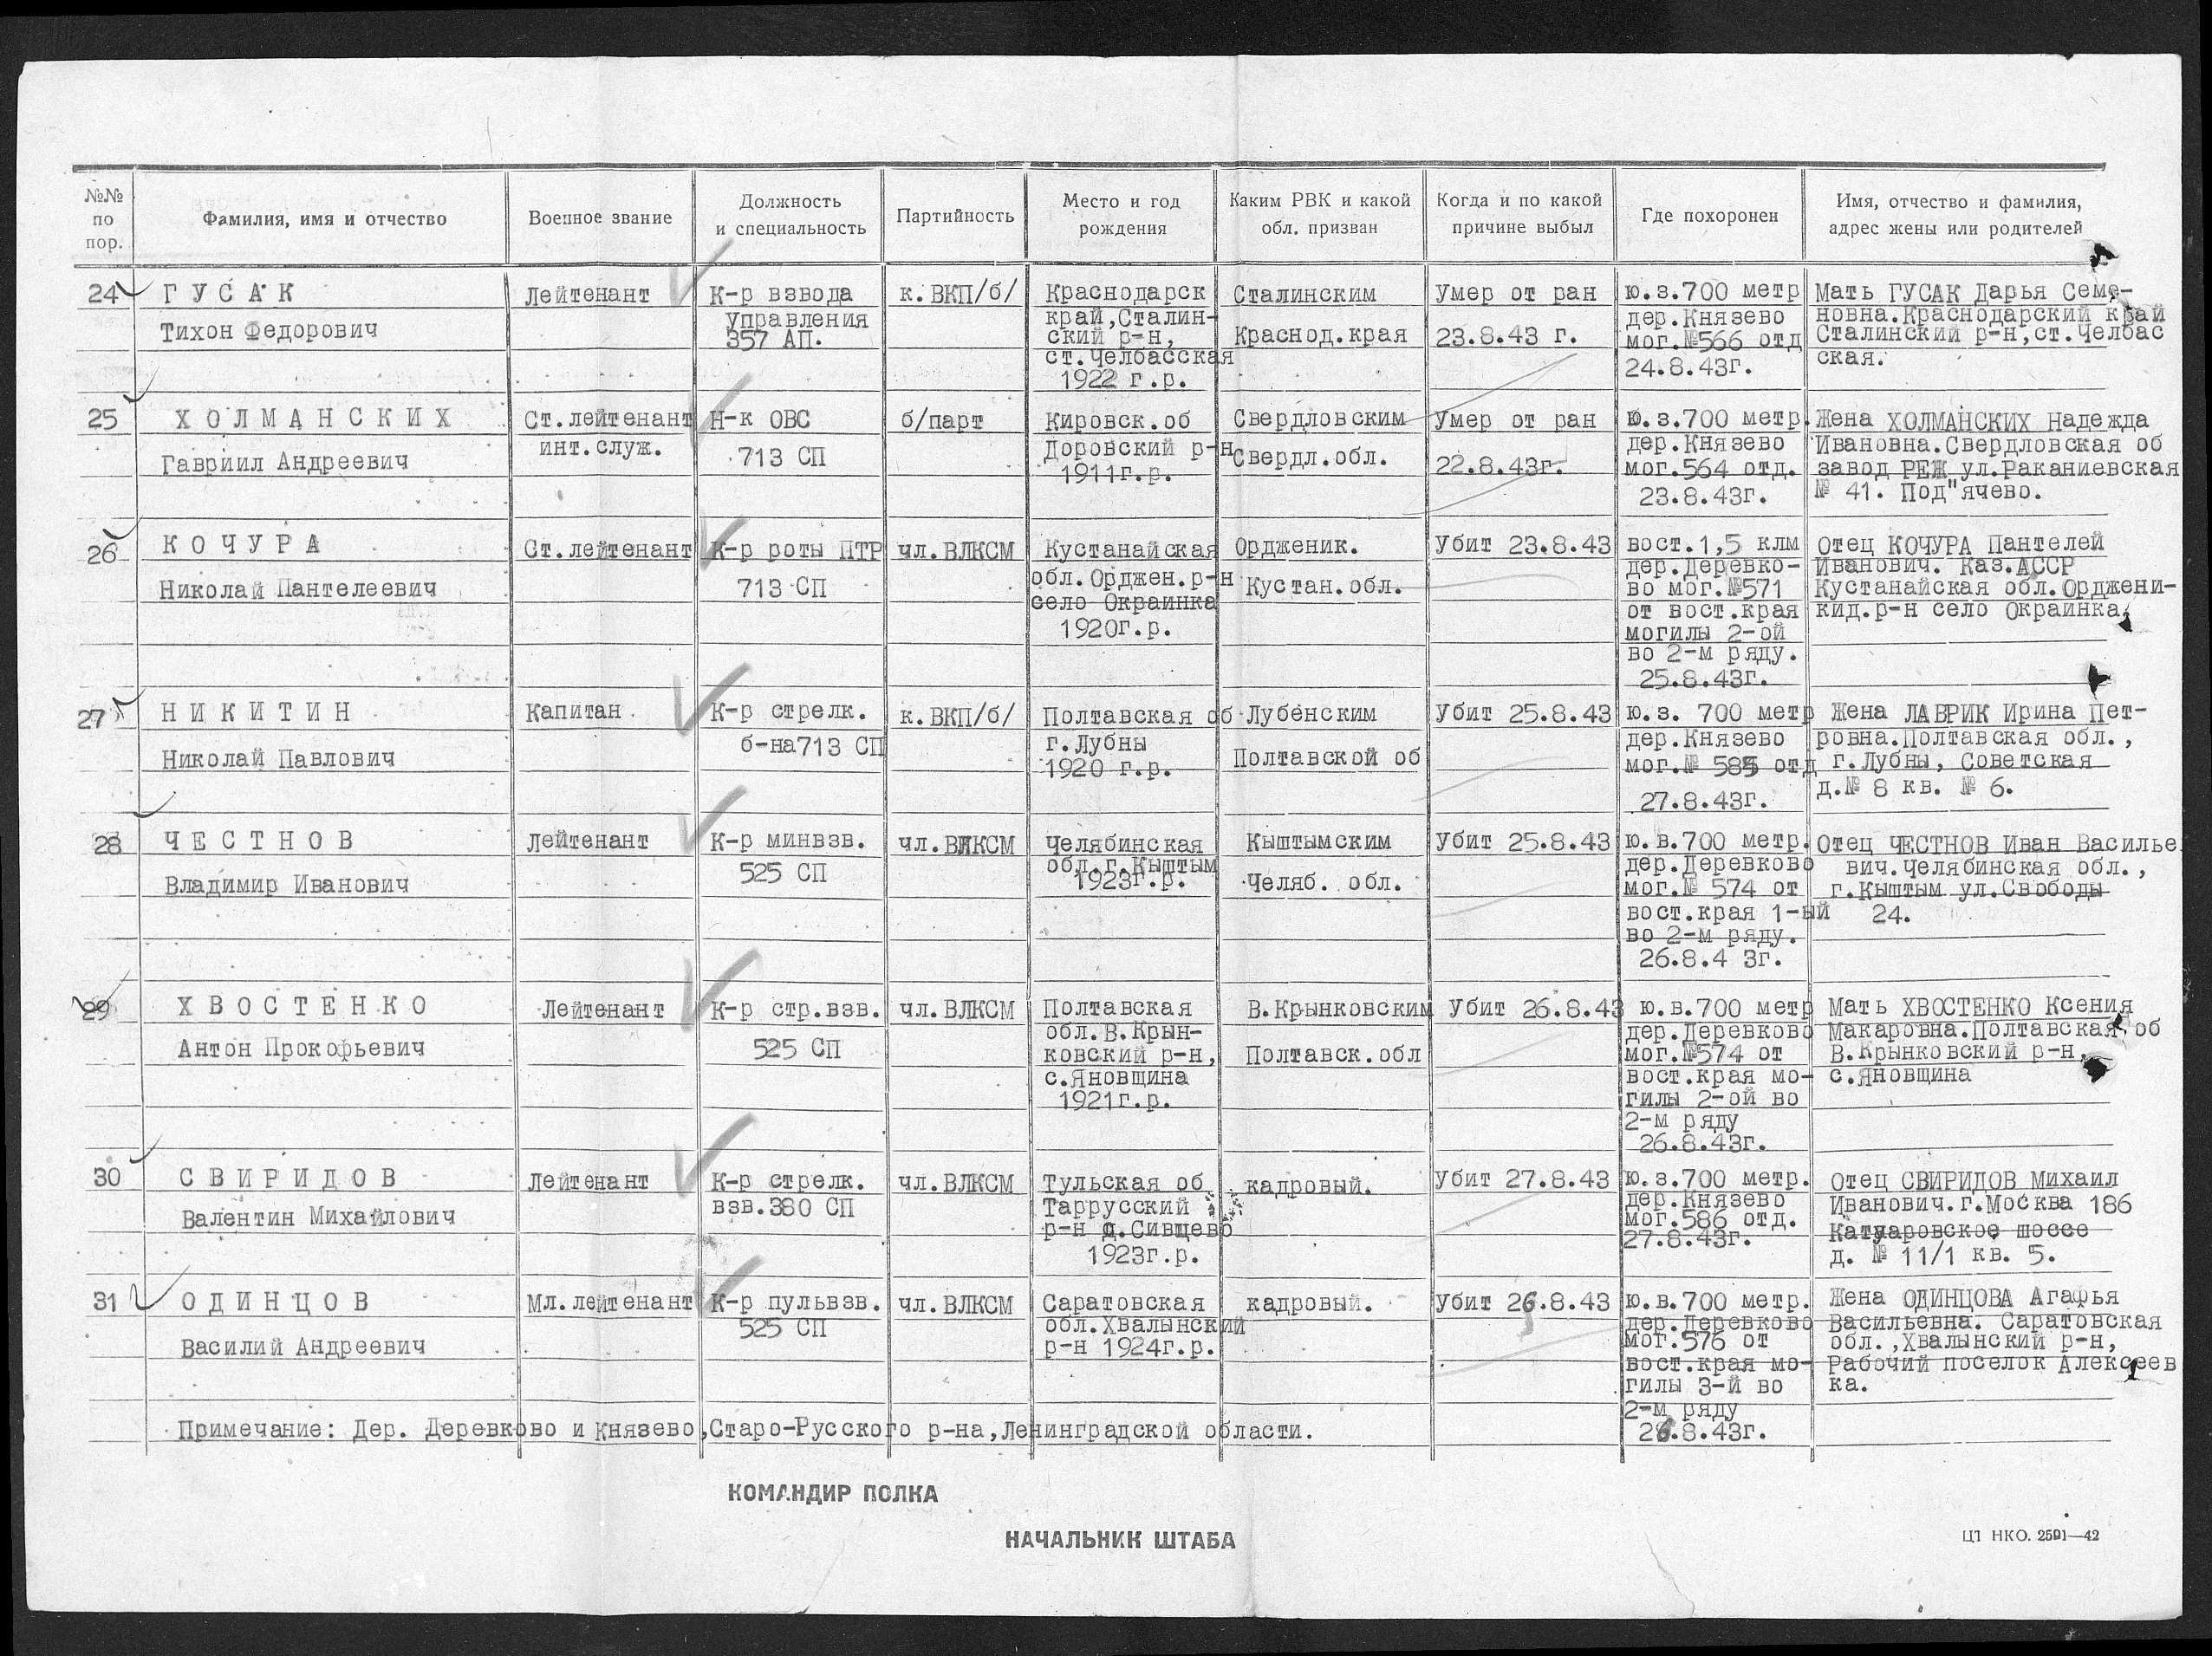 №№ по пор.
Фамилия, имя и отчество
Военное звание
Должность и специальность
Партийность
Место и год рождения
Каким РВК и какой обл. призван
Когда и по какой причине выбыл
Где похоронен
Имя, отчество и фамилия, адрес жены или родителей
24
ГУСАК
Тихон Федорович
Лейтенант
К-р взвода
управления
357 АП.
к.ВКП/б/
Краснодарск
край,Сталин-
ский р-н,
ст.Челбасская
1922 г.р.
Сталинским
Краснод.края
Умер от ран
23.8.43 г.
ю.з.700 метр
дер.Князево
мог.№566 отд
24.8.43г.
Мать ГУСАК Дарья Семе-
новна.Краснодарский край
Сталинский р-н,ст.Челбас
ская.
25
ХОЛМАНСКИХ
Гавриил Андреевич
Ст.лейтенант
инт.служ.
Н-к ОВС
713 СП
б/парт
Кировск.об
Доровский р-н
1911г.р.
Свердловским
Свердл.обл.
Умер от ран
22.8.43г.
Ю.з.700 метр.
дер.Князево
мог.564 отд.
23.8.43г.
Жена ХОЛМАНСКИХ Надежда
Ивановна.Свердловская об
завод РЕЖ ул.Раканиевская
№ 41. Под"ячево.
26
КОЧУРА
Николай Пантелеевич
Ст.лейтенант
К-р роты ПТР
713 СП
чл.ВЛКСМ
Кустанайская
обл.Орджен.р-н
село Окраинка
1920г.р.
Ордженик.
Кустан.обл.
Убит 23.8.43
вост.1,5 клм
дер.Деревко-
во мог.№571
от вост.края
могилы 2-ой
во 2-м ряду.
25.8.43г.
Отец КОЧУРА Пантелей
Иванович. Каз.АССР
Кустанайская обл.Орджени-
кид.р-н село Окраинка,
27
НИКИТИН
Николай Павлович
Капитан
К-р стрелк.
б-на713 СП
к.ВКП/б/
Полтавская об
г.Лубны
1920 г.р.
Лубенским
Полтавской об
Убит 25.8.43
ю.з. 700 метр
дер.Князево
мог.№ 585 отд
27.8.43г.
Жена ЛАВРИК Ирина Пет-
ровна.Полтавская обл.,
г.Лубны, Советская
д.№ 8 кв. № 6.
28
ЧЕСТНОВ
Владимир Иванович
Лейтенант
К-р минвзв.
525 СП
чл.ВЛКСМ
Челябинская
обл.г.Кыштым
1923г.р.
Кыштымским
Челяб. обл.
Убит 25.8.43
ю.в.700 метр.
дер.Деревково
мог.№ 574 от
вост.края 1-ый
во 2-м ряду.
26.8.4 3г.
Отец ЧЕСТНОВ Иван Василье
вич.Челябинская обл.,
г.Кыштым ул.Свободы
24.
29
ХВОСТЕНКО
Антон Прокофьевич
Лейтенант
К-р стр.взв.
525 СП
чл.ВЛКСМ
Полтавская
обл.В.Крын-
ковский р-н,
с.Яновщина
1921г.р.
В.Крынковским
Полтавск.обл
Убит 26.8.43
ю.в.700 метр
дер.Деревково
мог.№574 от
вост.края мо-
гилы 2-ой во
2-м ряду
26.8.43г.
Мать ХВОСТЕНКО Ксения
Макаровна.Полтавская об
В.Крынковский р-н,
с.Яновщина
30
СВИРИДОВ
Валентин Михайлович
Лейтенант
К-р стрелк.
взв.380 СП
чл.ВЛКСМ
Тульская об
Таррусский
р-н д.Сивцево
1923г.р.
кадровый.
Убит 27.8.43
ю.з.700 метр.
дер.Князево
мог.586 отд.
27.8.43г.
Отец СВИРИДОВ Михаил
Иванович.г.Москва 186
Катуаровское шоссе
д. № 11/1 кв. 5.
31
ОДИНЦОВ
Василий Андреевич
Мл.лейтенант
К-р пульвзв.
525 СП
чл.ВЛКСМ
Саратовская
обл.Хвалынский
р-н 1924г.р.
кадровый.
Убит 26.8.43
ю.в.700 метр.
дер.Деревково
мог.576 от
вост.края мо-
гилы 3-й во
2-м ряду
26.8.43г.
Жена ОДИНЦОВА Агафья
Васильевна. Саратовская
обл.,Хвалынский р-н,
Рабочий поселок Алексеев
ка.
Примечание: Дер. Деревково и Князево,Старо-Русского р-на,Ленинградской области.
КОМАНДИР ПОЛКА
НАЧАЛЬНИК ШТАБА
ЦТ НКО. 2591—42